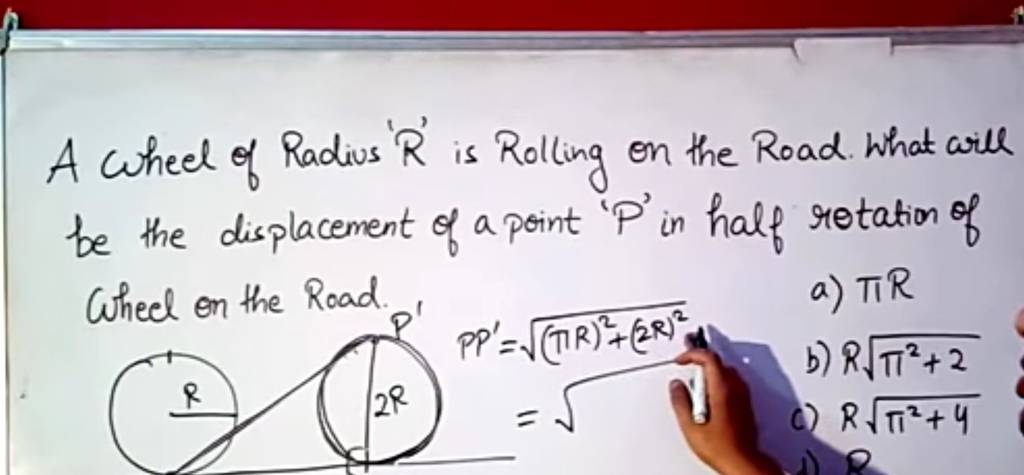 A Wheel of Radius 'R' is Rolling on the Road. What will
be the displacement of a point 'P' in half rotation of
Wheel on the Road.
a) πR
P'
PP' = √(πR)²+(2R)²
b) R√π²+2
R
2R
= √
c) R√π²+4
d) R